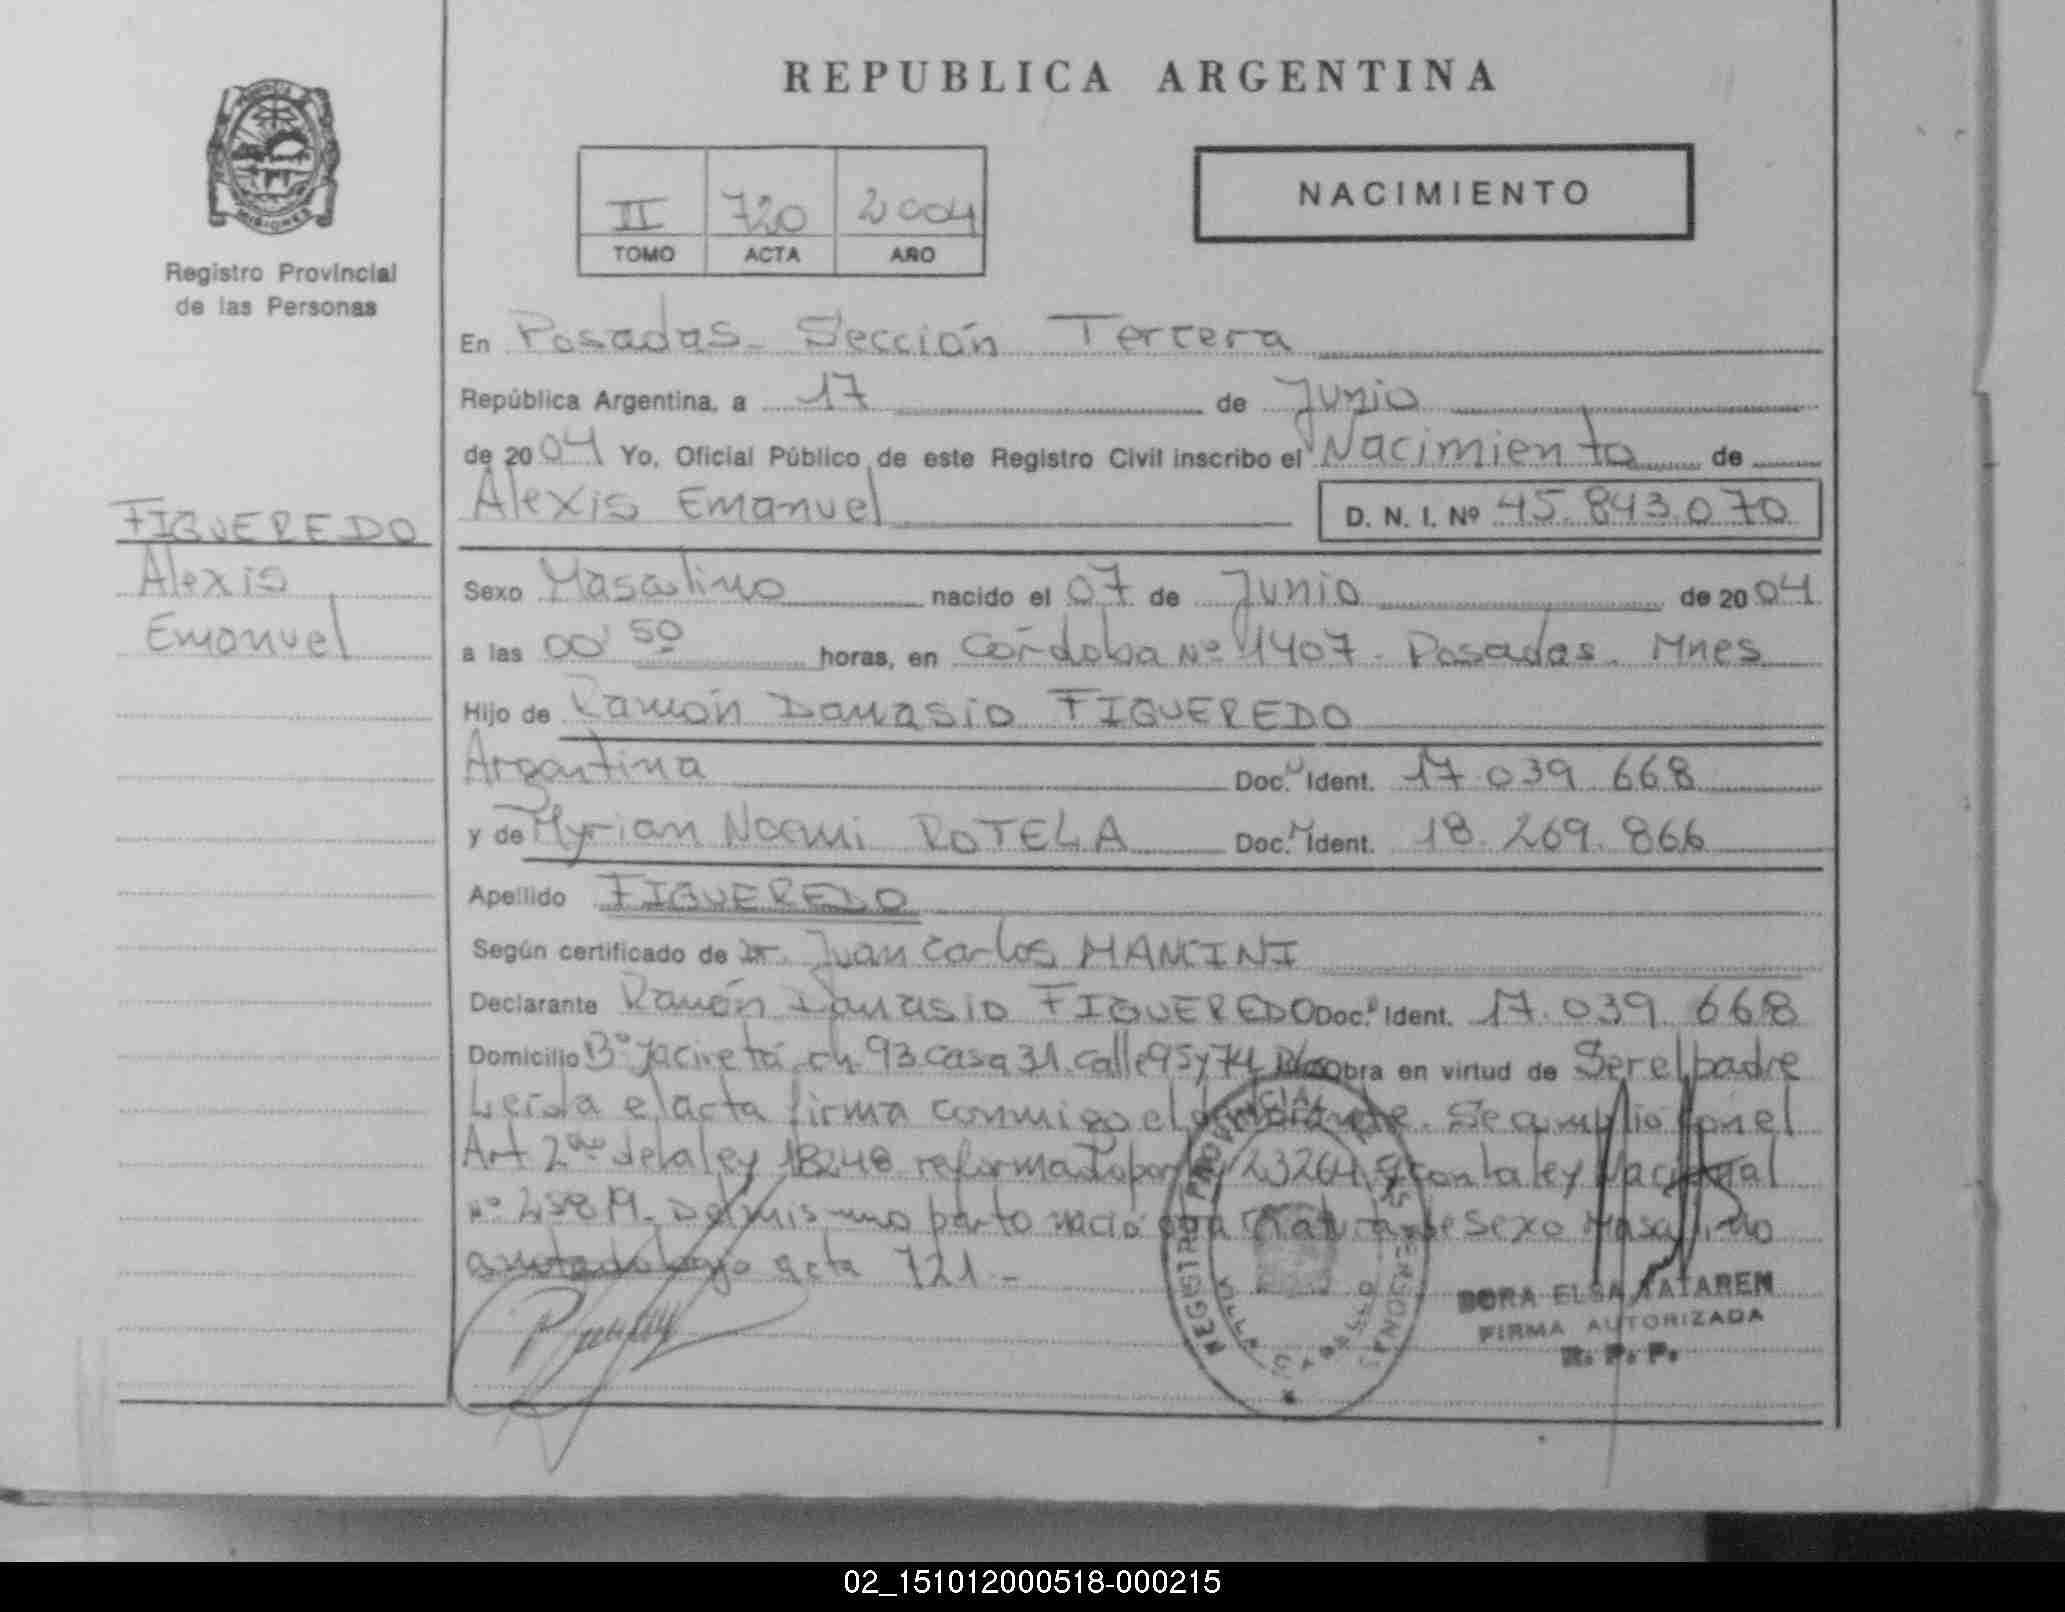 REPUBLICA ARGENTINA
PROVINCIA
MISIONES
Registro Provincial
de las Personas
II 720 2004
TOMO ACTA AÑO
NACIMIENTO
En Posadas - Sección Tercera
República Argentina, a 17 de Junio
de 2004 Yo, Oficial Público de este Registro Civil inscribo el Nacimiento de
Alexis Emanuel D. N. I. Nº 45.843.070
FIGUEREDO
Alexis
Emanuel
Sexo Masculino nacido el 07 de Junio de 2004
a las 00' 50 horas, en Córdoba Nº 1407 - Posadas. Mnes
Hijo de Ramón Damasio FIGUEREDO
Argentina Doc. Ident. 17.039.668
y de Myrian Noemi ROTELA Doc. Ident. 18.269.866
Apellido FIGUEREDO
Según certificado de Dr. Juan Carlos MANCINI
Declarante Ramón Damasio FIGUEREDO Doc. Ident. 17.039.668
Domicilio Bº Jacireta ch 93 casa 31 calle 95 y 74 Obra en virtud de Ser el padre
Leída el acta firma conmigo el declarante. Se cumplió con el
Art 2do de la ley 18248 reformado por 23264 y con la ley Nacional
Nº 25819. Del mismo parto nació otra criatura de sexo Masculino
anotado bajo acta 721 -
REGISTRO PROVINCIAL DE LAS PERSONAS
VILLA CABELLO
DORA ELSA TATAREN
FIRMA AUTORIZADA
R. P. P.
02_151012000518-000215